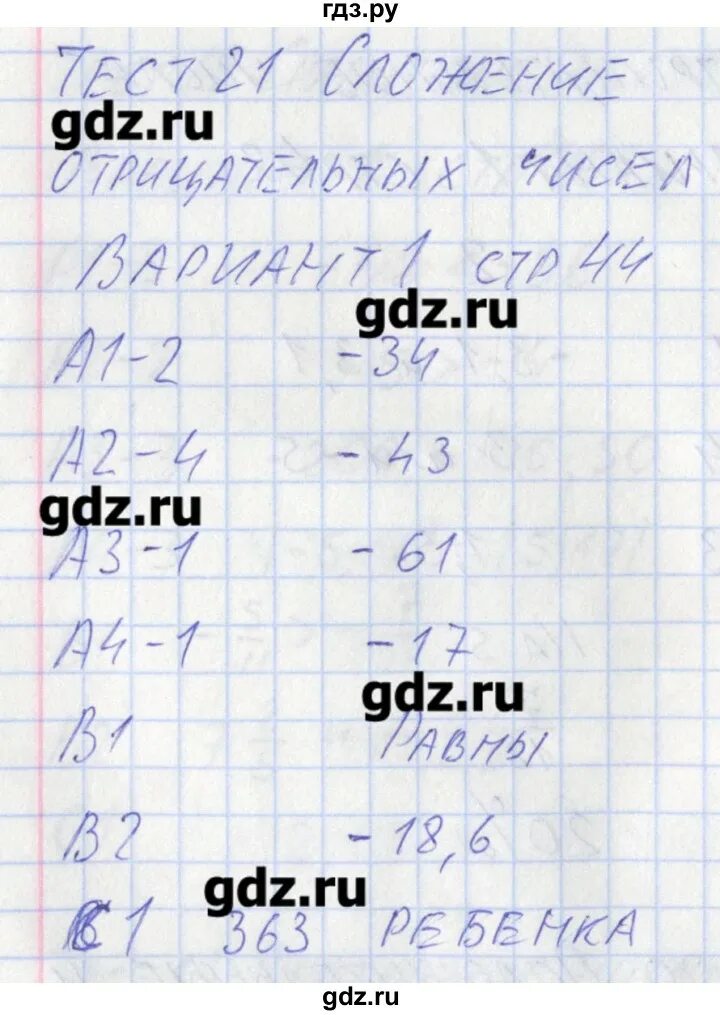 гдз.ру
Тест 21 Сложение
gdz.ru
отрицательных чисел
Вариант 1 стр 44
gdz.ru
А1-2 -34
А2-4 -43
gdz.ru
А3-1 -61
А4-1 -17
gdz.ru
В1 Равны
В2 -18,6
gdz.ru
С1 363 ребенка
gdz.ru